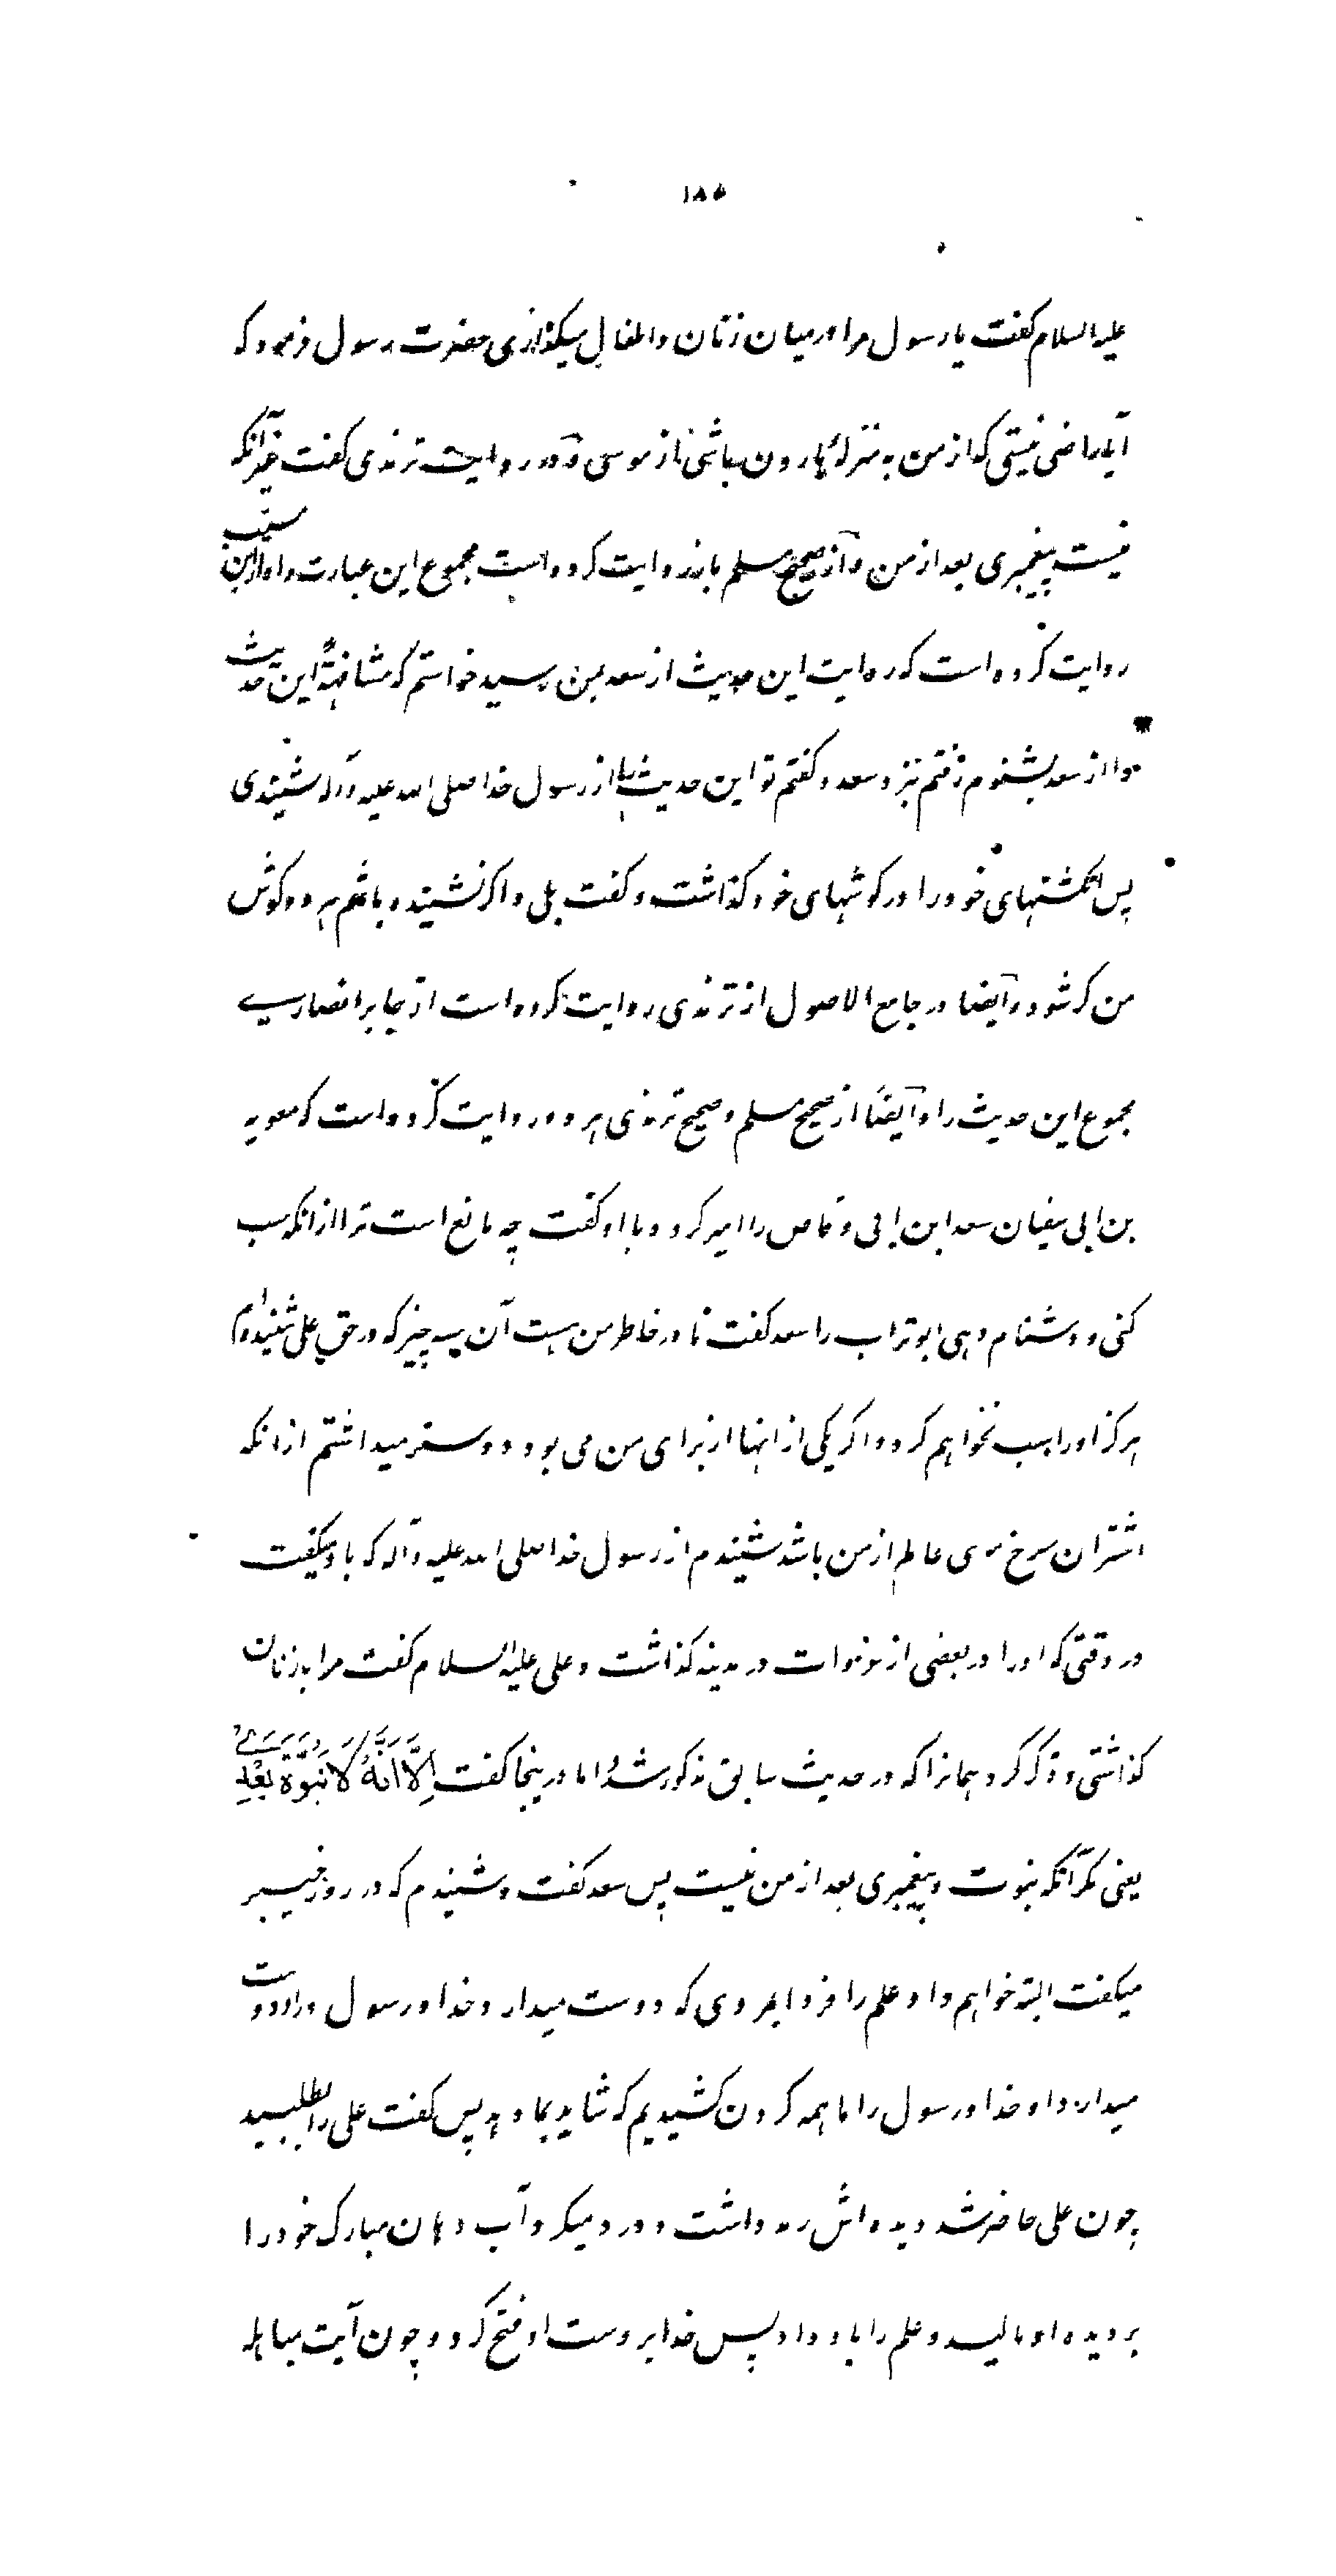 ۱۸۵
علیه السلام کفت یا رسول مرا در میان زنان و اطفال میکذاری حضرت رسول فرمود که
آیا راضی نیستی که از من به منزلهٔ هارون باشی از موسی و در روایت ترمذی کفت غیر آنکه
نیست پیغمبری بعد از من و از صحیح مسلم باز روایت کرده است مجموع این عبارت را و از ابن مسیب
روایت کرده است که روایت این حدیث از سعد بمن رسید خواستم که مشافهةً این حدیث
را از سعد بشنوم رفتم نزد سعد و کفتم تو این حدیث را از رسول خدا صلی الله علیه و آله شنیدی
پس انکشتهای خود را در کوشهای خود کذاشت و کفت بلی و اکر نشنیده باشم هر دو کوش
من کر شود و آیضا در جامع الاصول از ترمذی روایت کرده است از جابر انصاری
مجموع این حدیث را و آیضًا از صحیح مسلم و صحیح ترمذی هر دو روایت کرده است که معویه
بن ابی سفیان سعد ابن ابی وقاص را امیر کرد و با او کفت چه مانع است ترا از انکه سب
کنی و دشنام دهی ابو تراب را سعد کفت تا در خاطر من هست آن سه چیز که در حق علی شنیده‌ام
هرکز او را سب نخواهم کرد و اکر یکی از انها از برای من می بود دوستر میداشتم از انکه
اشتران سرخ موی عالم از من باشد شنیدم از رسول خدا صلی الله علیه و آله که باو میکفت
در وقتی که او را در بعضی از غزوات در مدینه کذاشت و علی علیه السلام کفت مرا با زنان
کذاشتی و ذکر کرد همانرا که در حدیث سابق مذکور شد اما در ینجا کفت اِلَّا انَّهُ لَا نَبُوَّةَ بَعْدِی
یعنی مکر آنکه نبوت و پیغمبری بعد از من نیست پس سعد کفت و شنیدم که در روز خیبر
میکفت البته خواهم داد علم را فردا بمردی که دوست میدارد خدا و رسول را و دوست
میدارد او را خدا و رسول او ما همه کردن کشیدیم که شاید بما دهد پس کفت علی را بطلبید
چون علی حاضر شد دیده اش رمد داشت و درد میکرد آب دهان مبارک خود را
بر دیده او مالید و علم را باو داد پس خدا بر دست او فتح کرد و چون آیت مباهله